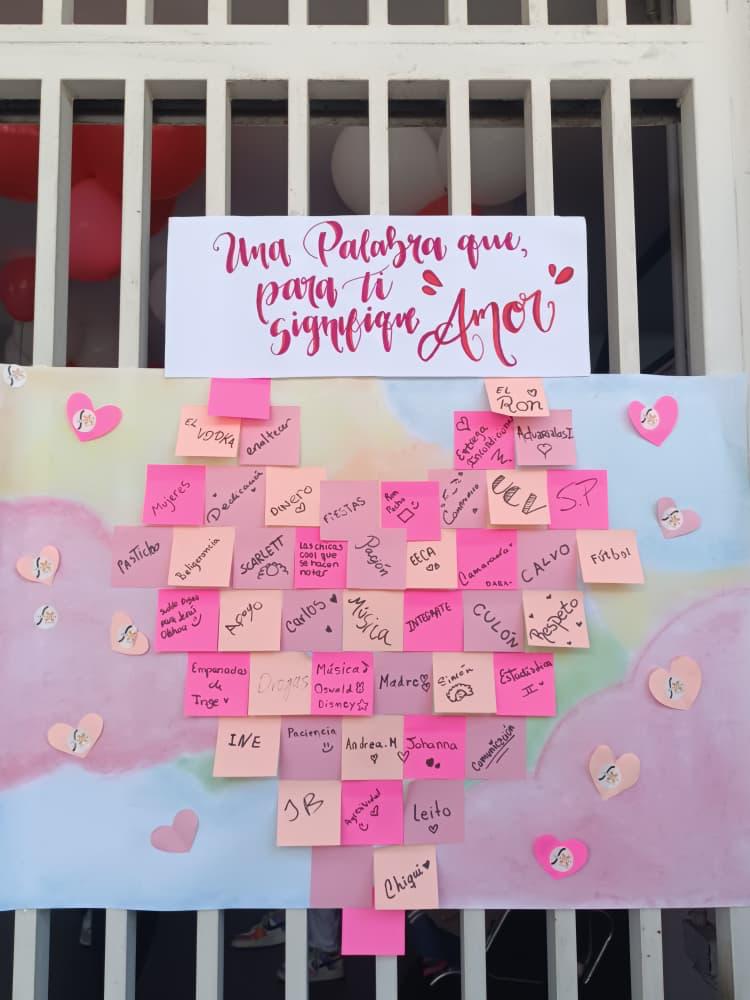 Una Palabra que,
para ti
signifique "Amor"
EL
Ron
EL VODKA
enaltecer
Entrega
Incondicional
Actuariales I
Mujeres
Dedicación
DINERO
FIESTAS
Ron
Pecho
Compromiso
UCV
S.P
PASTICHO
Beligerancia
SCARLETT
Las chicas
cool que
se hacen
notar
Pasión
EECA
Camaradería
DABA-
CALVO
Fútbol
Sueldo Digno
para Jesús
Apoyo
Carlos
Música
INTEGRATE
CULÓN
Respeto
Empanadas
de
Inge
Drogas
Música
Oswald
Disney
Madre
Simón
Estadística
II
INE
Paciencia
Andrea.M
Johanna
Comunicación
JB
Agresividad
Leito
Chiqui